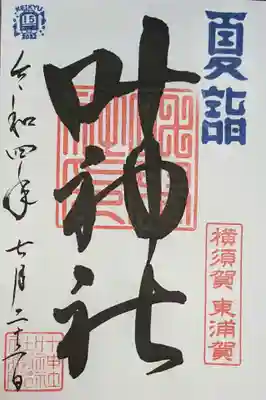 夏詣
横須賀 東浦賀
叶神社
KEIKYU
2022
令和四年 七月二十三日